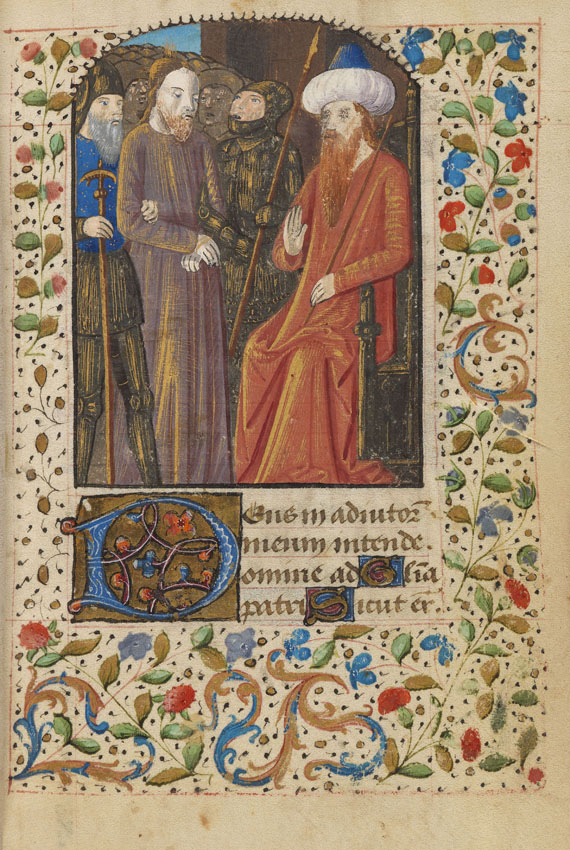 Deus in adiutor̄
meum intende
domine ad Glīa
patri Sicut er̄.